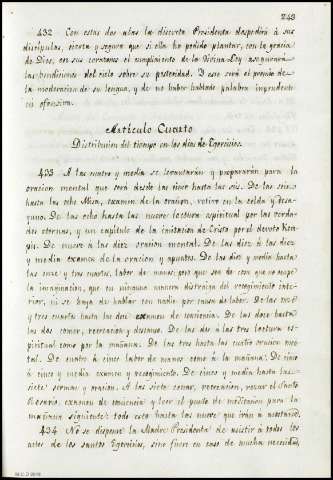 249
432 Con estas dos alas la discreta Presidenta despedirá á sus
discípulas, cierta y segura que si ella ha podido plantar, con la gracia
de Dios, en sus corazones el cumplimiento de la Divina Ley asegurará
las bendiciones del cielo sobre su posteridad. Y ese será el premio de
la moderacion de su lengua, y de no haber hablado palabra imprudente
ni ofensiva.
Artículo Cuarto
Distribucion del tiempo en los dias de Egercicios.
433 A las cuatro y media se levantarán y prepararán para la
oracion mental que será desde las cinco hasta las seis. De las seis
hasta las ocho Misa, examen de la oracion, retiro en la celda y desa-
yuno. De las ocho hasta las nueve lectura espiritual por las verda-
des eternas, y un capítulo de la imitacion de Cristo por el devoto Kem-
pis. De nueve á las diez oracion mental. De las diez á las diez
y media examen de la oracion y apuntes. De las diez y media hasta
las once y tres cuartos, labor de manos; pero que sea de cosa que no ocupe
la imaginacion, que en ninguna manera distraiga del recogimiento inte-
rior, ni se haya de hablar con nadie por causa de labor. De las once
y tres cuartos hasta las doce examen de conciencia. De las doce hasta
las dos comer, recreacion y descanso. De las dos á las tres lectura es-
piritual como por la mañana. De las tres hasta las cuatro oracion men-
tal. De cuatro á cinco labor de manos como á la mañana. De cinco
á cinco y media examen y recogimiento. De cinco y media hasta las
siete sermon y oracion. A las siete cenar, recreacion, rezar el Santo
Rosario, examen de conciencia y leer el punto de meditacion para la
mañana siguiente: todo esto hasta las nueve que irán a acostarse.
434 No se dispense la Madre Presidenta de asistir á todos los
actos de los santos Egercicios, sino fuere en caso de mucha necesidad,